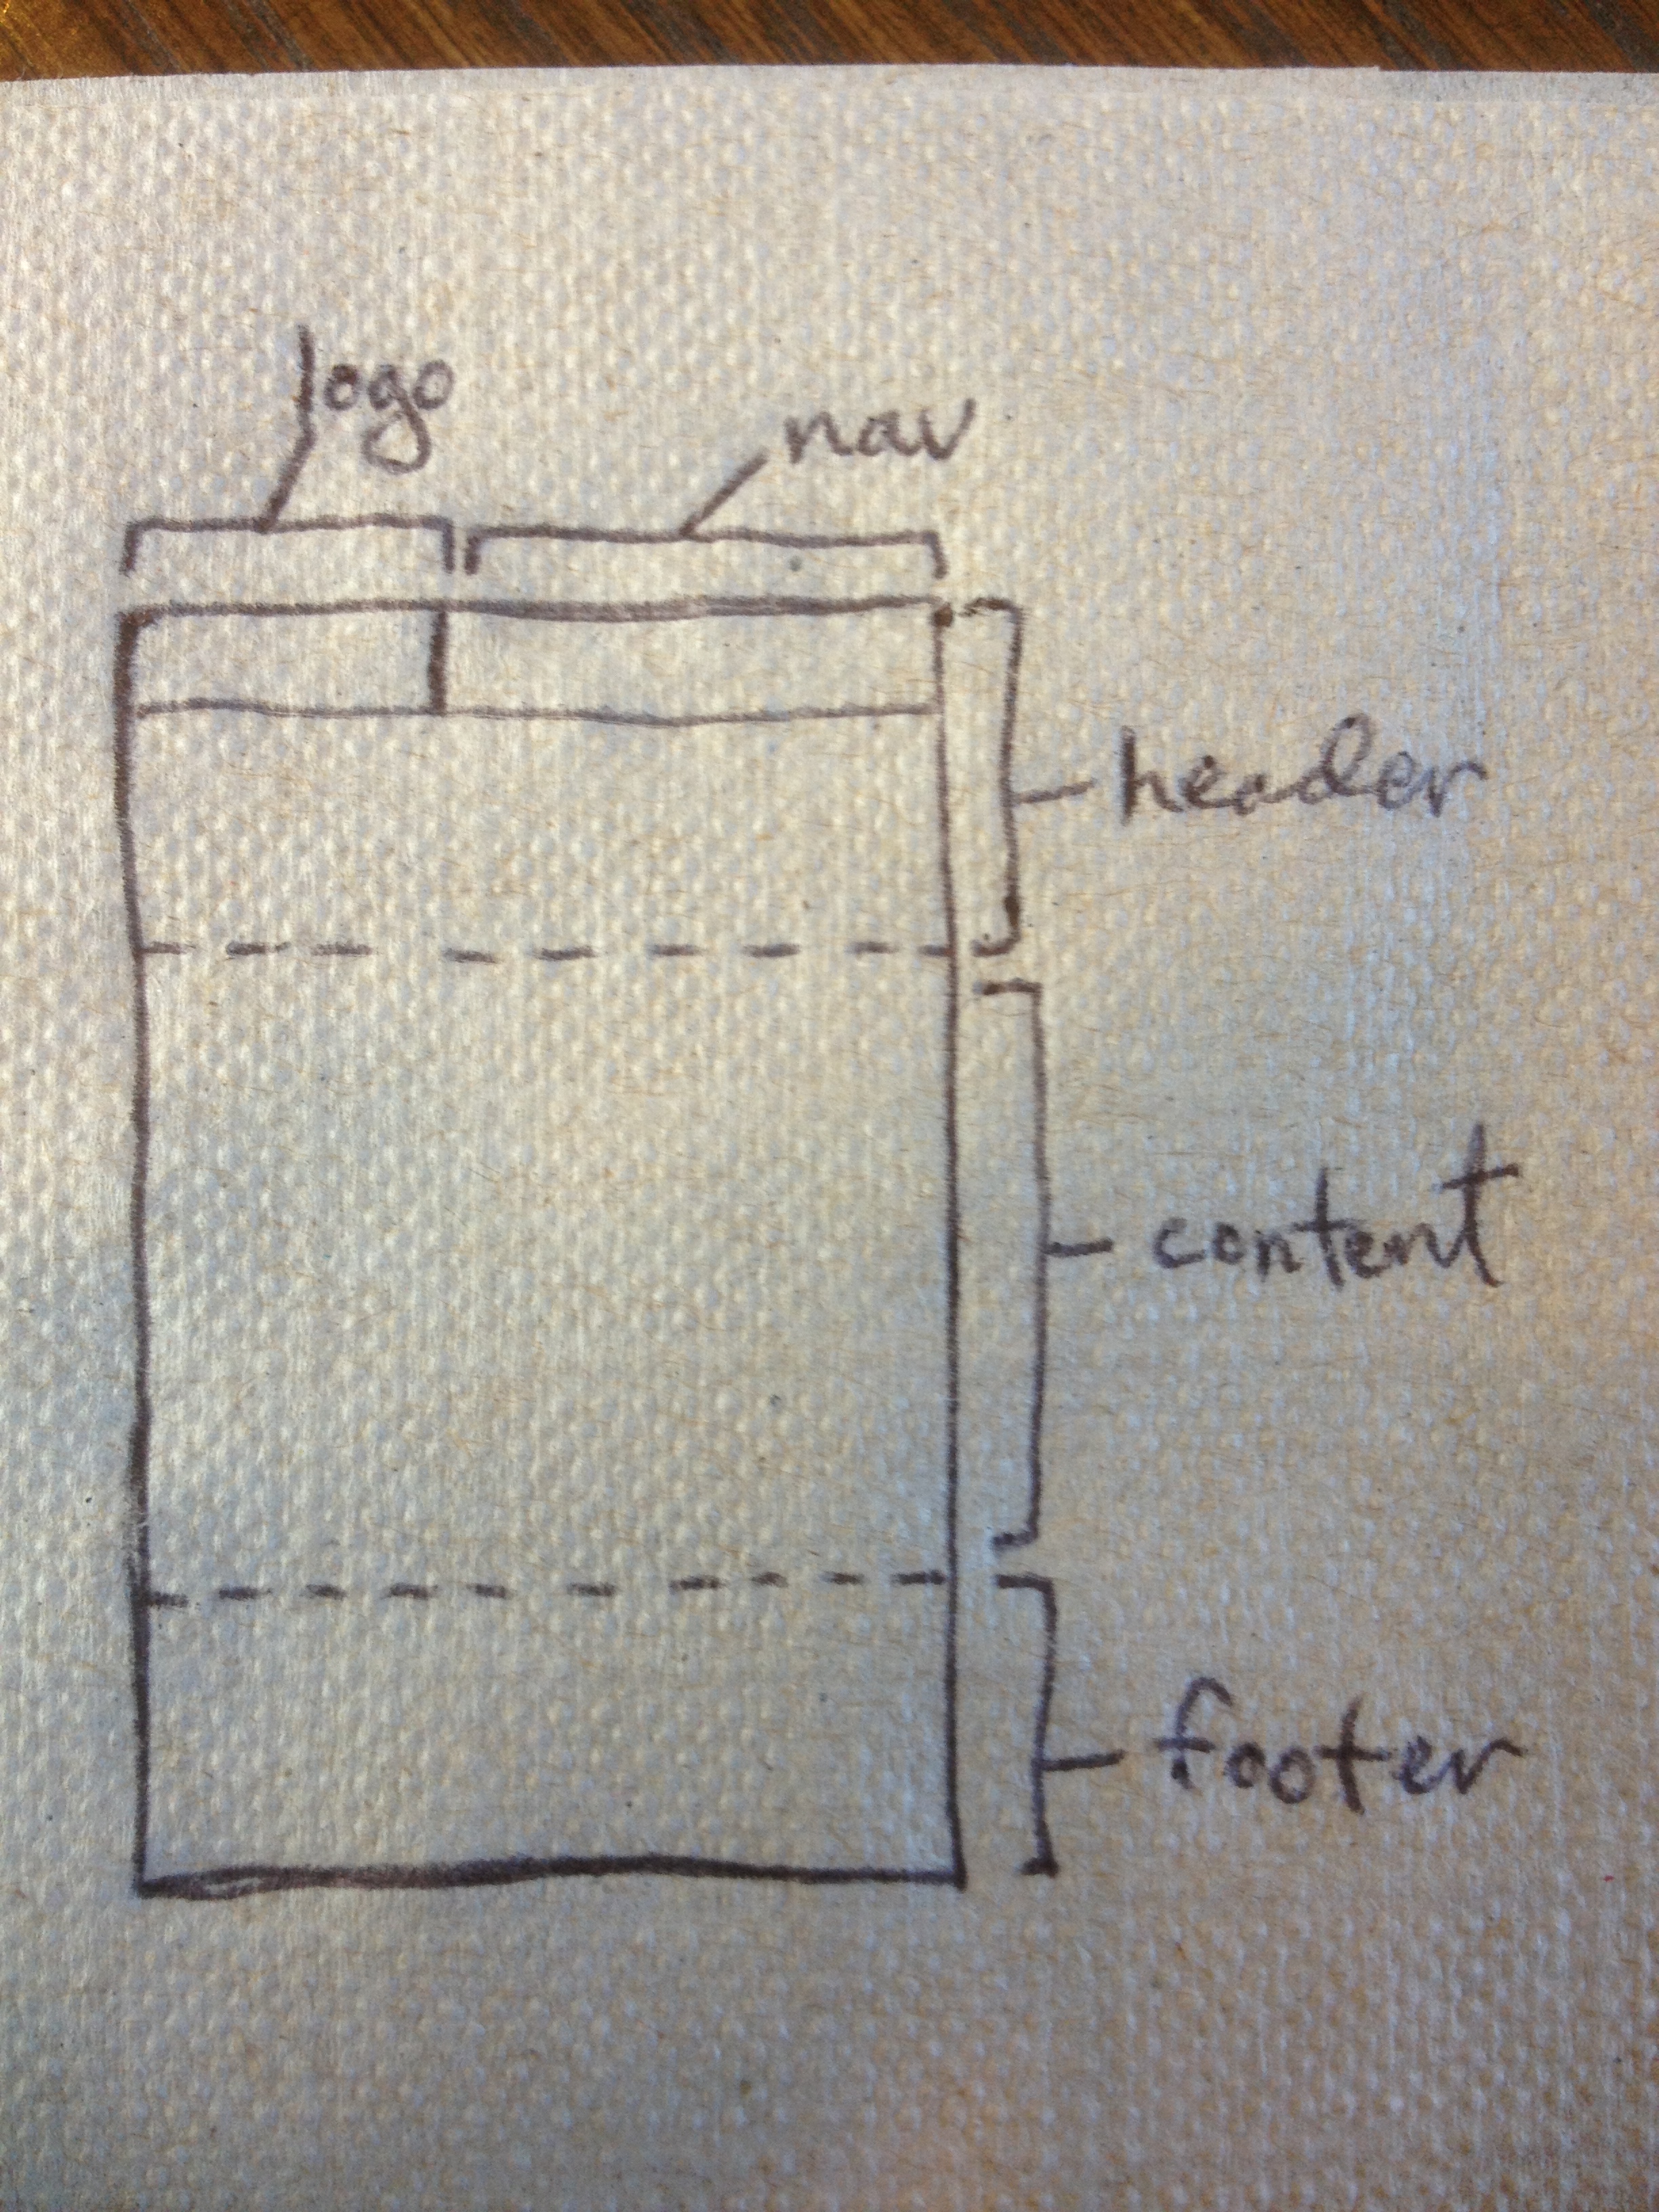 logo
nav
header
content
footer